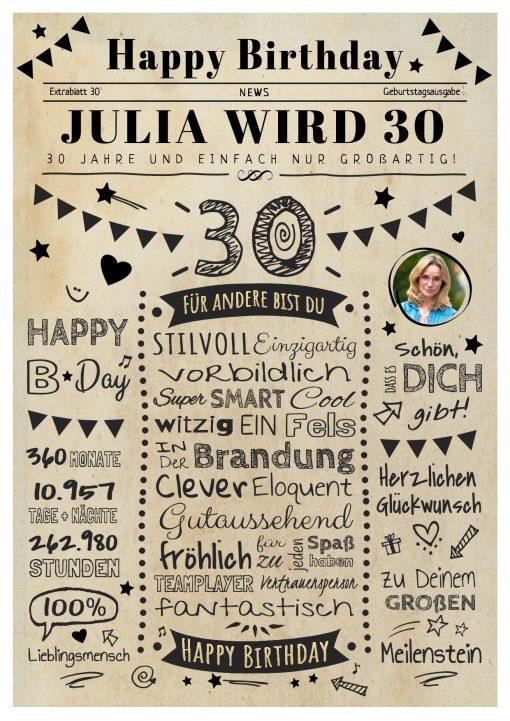 Happy Birthday
Extrablatt 30 NEWS Geburtstagsausgabe
JULIA WIRD 30
30 JAHRE UND EINFACH NUR GROßARTIG!
30
FÜR ANDERE BIST DU
STILVOLL Einzigartig
vorbildlich
Super SMART Cool
witzig EIN Fels
IN DER Brandung
Clever Eloquent
Gutaussehend
fröhlich für jeden Spaß zu haben
TEAMPLAYER Vertrauensperson
fantastisch
HAPPY BIRTHDAY
HAPPY
B Day
360 MONATE
10.957
TAGE + NÄCHTE
262.980
STUNDEN
100%
Lieblingsmensch
Schön,
DASS ES DICH
gibt!
Herzlichen
Glückwunsch
zu Deinem
GROßEN
Meilenstein